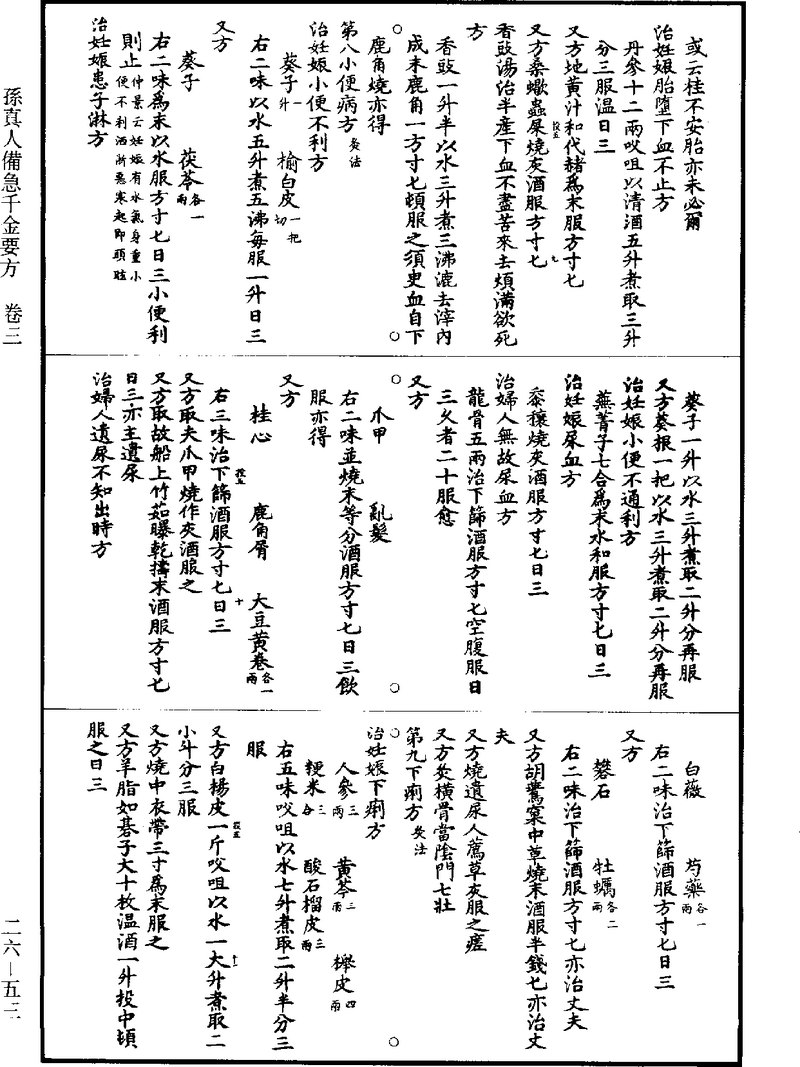 或云桂不安胎亦未必爾
治妊娠胎墮下血不止方
丹參十二兩㕮咀以清酒五升煮取三升
分三服溫日三
又方地黃汁和代赭為末服方寸七
又方桑蠍蟲屎燒灰酒服方寸七
香豉湯治半產下血不盡苦來去煩滿欲死
方
香豉一升半以水三升煮三沸漉去滓內
成末鹿角一方寸七頓服之須臾血自下
鹿角燒亦得
第八小便病方 灸法
治妊娠小便不利方
葵子一升 榆白皮一把切
右二味以水五升煮五沸每服一升日三
又方
葵子 茯苓各一兩
右二味為末以水服方寸七日三小便利
則止仲景云妊娠有水氣身重小便不利洒淅惡寒起即頭眩
治妊娠患子淋方
葵子一升以水三升煮取二升分再服
又方葵根一把以水三升煮取二升分再服
治妊娠小便不通利方
蕪菁子七合為末水和服方寸七日三
治妊娠尿血方
黍穰燒灰酒服方寸七日三
治婦人無故尿血方
龍骨五兩治下篩酒服方寸七空腹服日
三久者二十服愈
又方
爪甲 亂髮
右二味並燒末等分酒服方寸七日三飲
服亦得
又方
桂心 鹿角屑 大豆黃卷各一兩
右三味治下篩酒服方寸七日三
又方取夫爪甲燒作灰酒服之
又方取故船上竹茹曝乾擣末酒服方寸七
日三亦主遺尿
治婦人遺尿不知出時方
白薇 芍藥各一兩
右二味治下篩酒服方寸七日三
又方
礬石 牡蠣各二兩
右二味治下篩酒服方寸七亦治丈夫
又方胡鷰窠中草燒末酒服半錢七亦治丈
夫
又方燒遺尿人薦草灰服之瘥
又方灸橫骨當陰門七壯
第九下痢方 灸法
治妊娠下痢方
人參三兩 黃芩三兩 櫸皮四兩
粳米三合 酸石榴皮三兩
右五味㕮咀以水七升煮取二升半分三
服
又方白楊皮一斤㕮咀以水一大升煮取二
小斗分三服
又方燒中衣帶三寸為末服之
又方羊脂如碁子大十枚溫酒一升投中頓
服之日三
孫真人備急千金要方 卷三
二六—五三